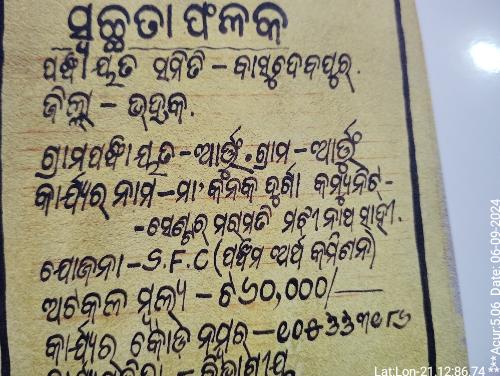 ସ୍ୱଚ୍ଛତା ଫଳକ
ପଞ୍ଚାୟତ ସମିତି - ବାସୁଦେବପୁର.
ଜିଲ୍ଲା - ଭଦ୍ରକ.
ଗ୍ରାମପଞ୍ଚାୟତ - ଆର୍ତ୍ତୁଙ୍ଗ. ଗ୍ରାମ - ଆର୍ତ୍ତୁଙ୍ଗ
କାର୍ଯ୍ୟର ନାମ - ମା' କନକ ଦୁର୍ଗା କମ୍ୟୁନିଟି -
- ସେଣ୍ଟର ମରାମତି ସାହୀ.
ଯୋଜନା - S.F.C (ପଞ୍ଚମ ଅର୍ଥ କମିଶନ)
ଅଟକଳ ମୂଲ୍ୟ - ୧୬୦,୦୦୦/-
କାର୍ଯ୍ୟର କୋଡ ନମ୍ବର -
Lat:Lon-21.12:86.74
***Acur:5.06 Date: 06-09-2024